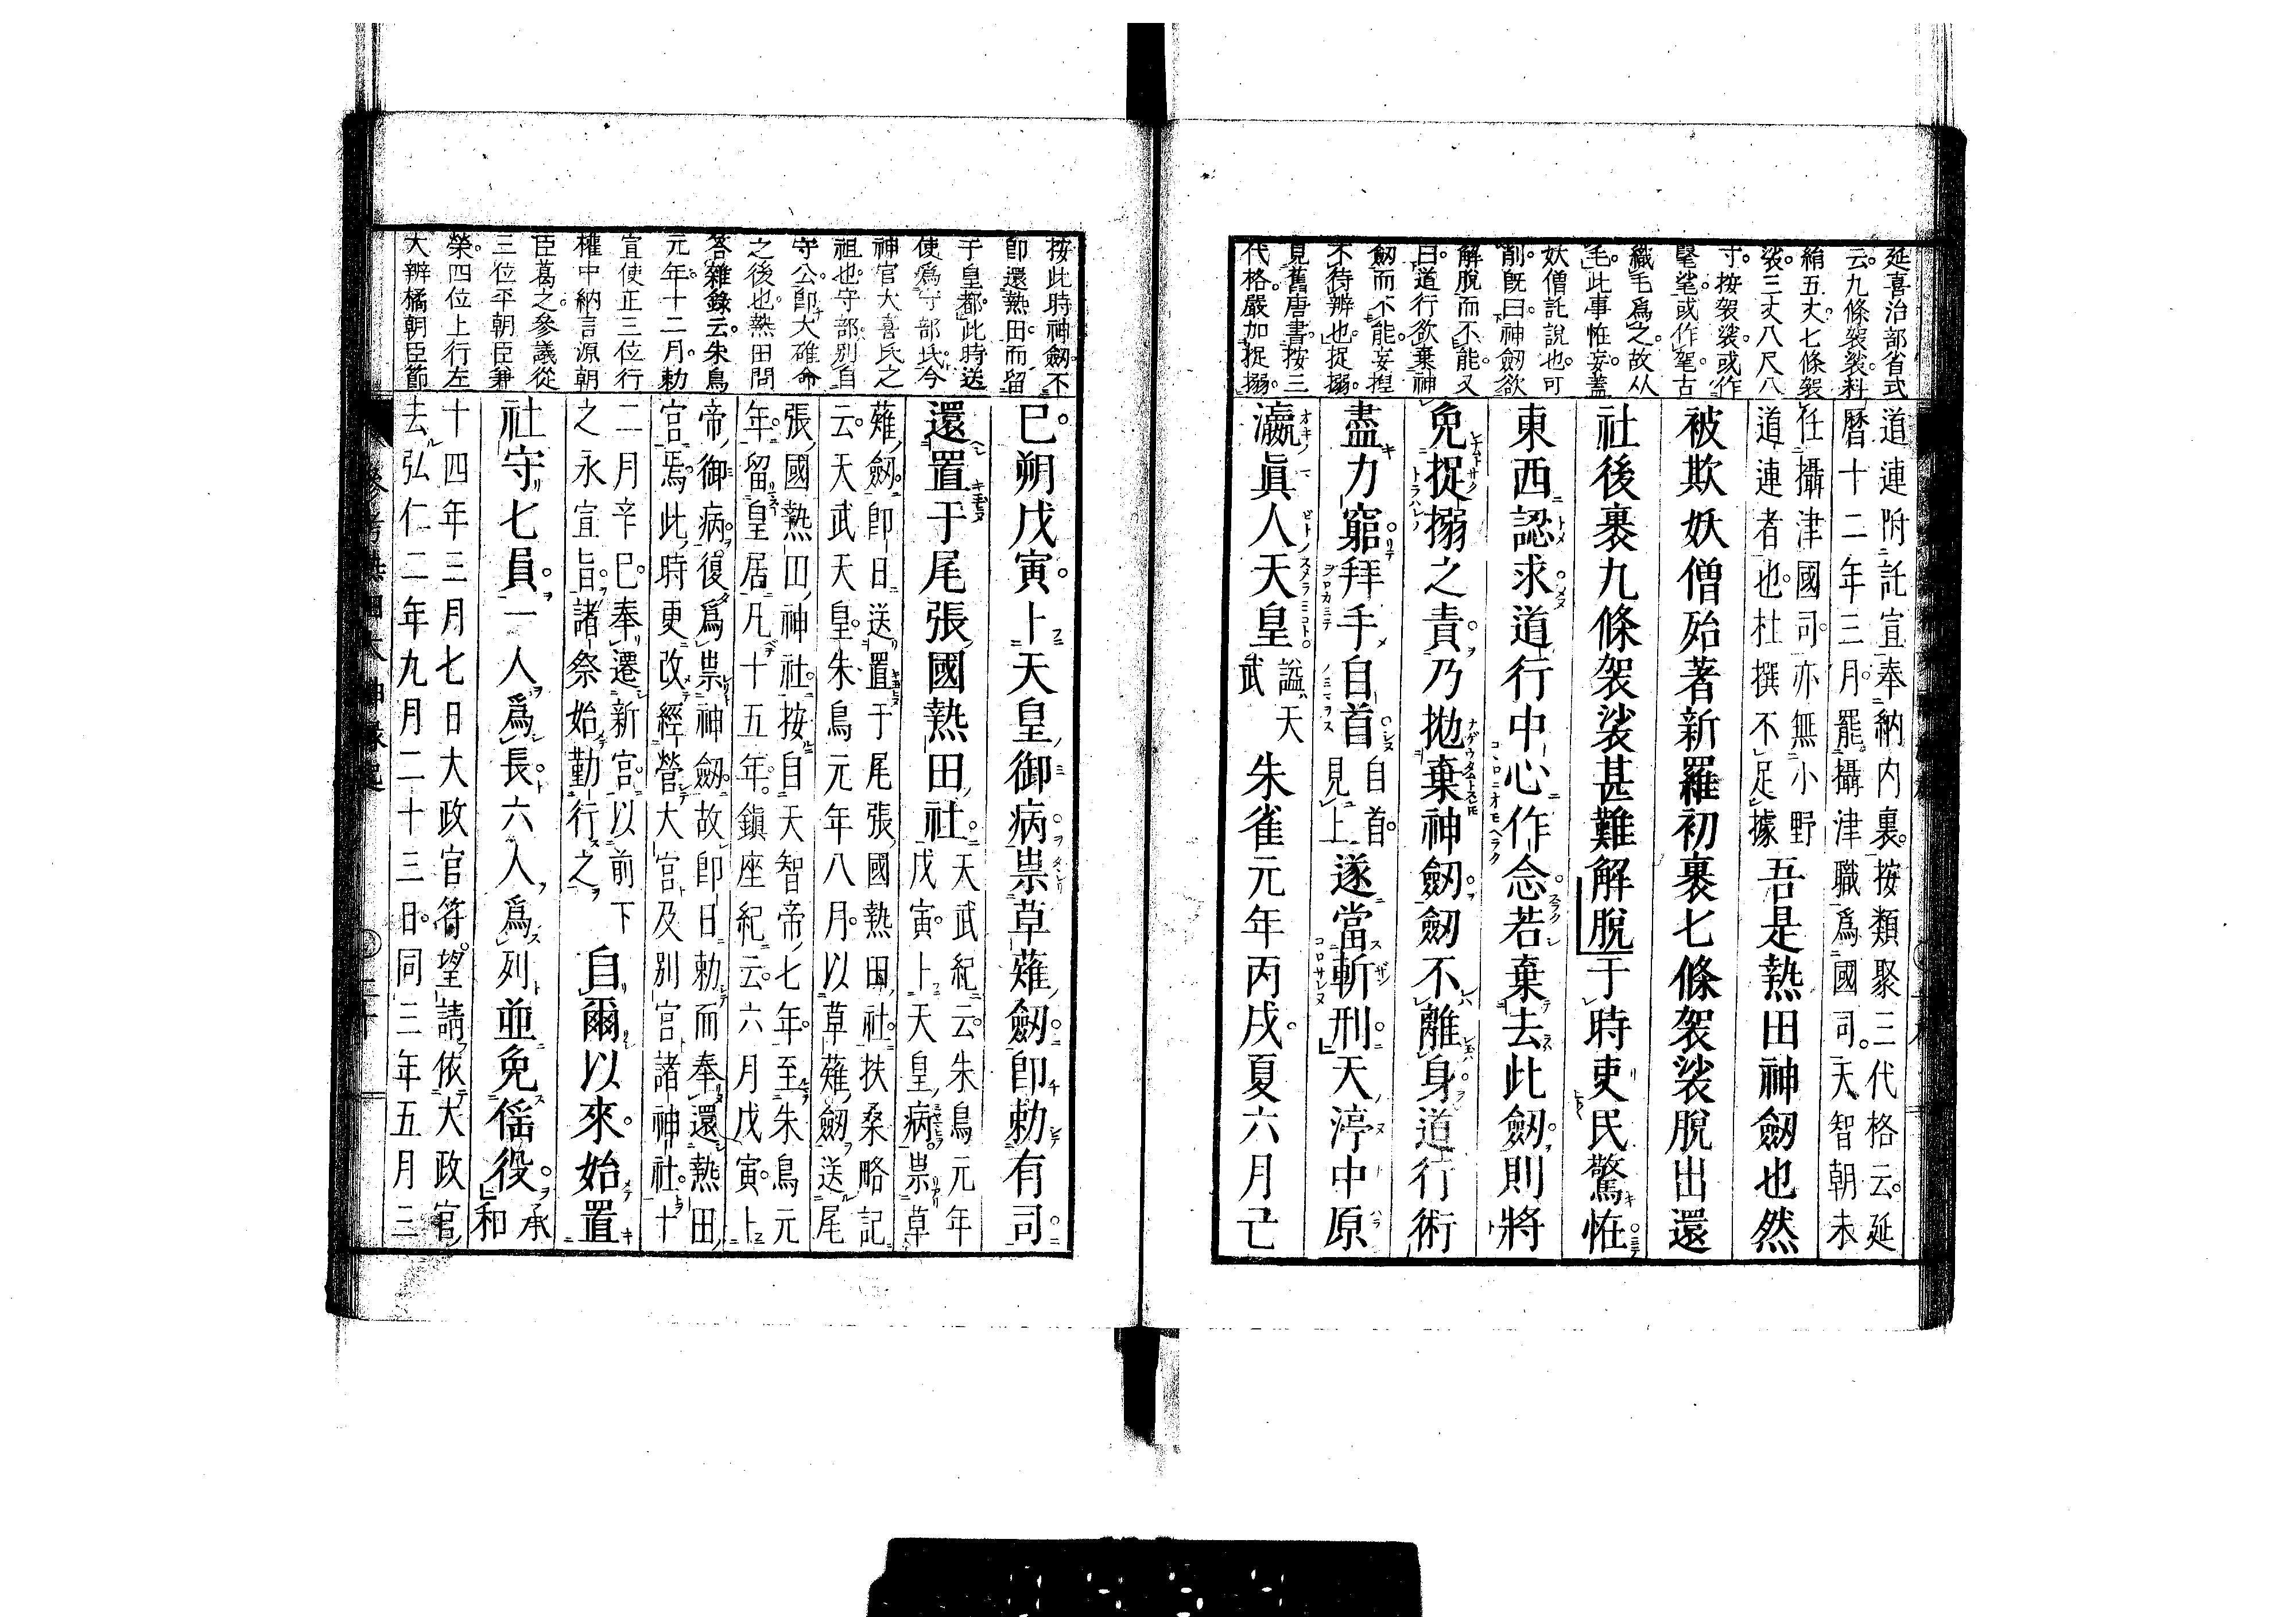 延喜治部省式
云九條袈裟料
絹五丈七條袈
裟三丈八尺八
寸按袈裟或作
毠㲚或作毠古
織毛爲之故从
毛此事恠妄蓋
妖僧託說也可
削旣曰神劔欲
解脫而不能又
曰道行欲棄神
劔而不能妄捏
不待辨也捉搦
見舊唐書按三
代格嚴加捉搦
道連附託宣奉納内裏按類聚三代格云延
曆十二年三月罷攝津職爲國司天智朝未
任攝津國司亦無小野
道連者也杜撰不足據
吾是熱田神劔也然
被欺妖僧殆著新羅初裹七條袈裟脫出還
社後裹九條袈裟甚難解脫于時吏民驚恠
東西認求道行中心作念若棄去此劔則將
免捉搦之責乃拋棄神劔劔不離身道行術
盡力窮拜手自首
自首
見上
遂當斬刑天渟中原
瀛眞人天皇
謚天
武
朱雀元年丙戌夏六月己
按此時神劔不
卽還熱田而留
于皇都此時送
使爲守部氏今
神官大喜氏之
祖也守部別自
守公卽大碓命
之後也熱田問
答雜錄云朱鳥
元年十二月勅
宣使正三位行
權中納言源朝
臣葛之參議從
三位平朝臣兼
榮四位上行左
大辨橘朝臣節
巳朔戊寅卜天皇御病祟草薙劔卽勅有司
還置于尾張國熱田社
天武紀云朱鳥元年
戊寅卜天皇病祟草
薙劔卽日送置于尾張國熱田社扶桑略記
云天武天皇朱鳥元年八月以草薙劔送尾
張國熱田神社按自天智帝七年至朱鳥元
年留皇居凡十五年鎭座紀云六月戊寅卜
帝御病復爲祟神劔故卽日勅而奉還熱田
宮焉此時更改經營大宮及別宮諸神社十
二月辛巳奉遷新宮以前下
之永宣旨諸祭始勤行之
自爾以來始置
社守七員一人爲長六人爲列並免徭役
承
和
十四年三月七日大政官符望請依大政官
去弘仁二年九月二十三日同三年五月三